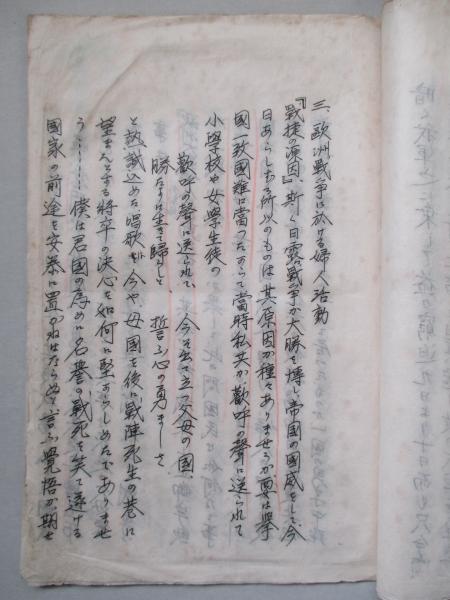 三、欧洲戦争に於ける婦人活動
『戦捷の原因』、斯く日露戦争が大勝を博し帝国の国威をして、今
日あらしむる所以のものは其原因が種々ありませうが要は挙
国一致国難に当つたからで当時私共が歓呼の声に送られて
小学校や女学生徒の
歓呼の声に送られて、今ぞ出で立つ父母の国、
勝たずば生きて帰らじと 誓ふ心の勇ましさ
と熱誠込めた唱歌が今や母国を後に戦陣死生の巷に
望まんとする将卒の決心を如何に堅からしめたでありませ
う……僕は君国の為めに名誉の戦死を 遂げる
国家の前途を安泰に置かねばならぬと言ふ覚悟が期せ